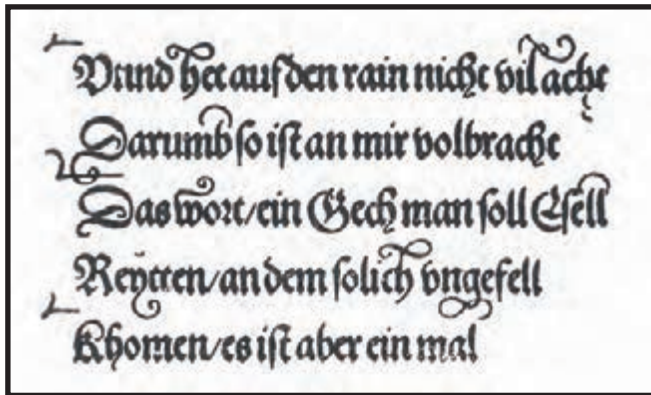 Vnnd het auf den rain nicht vil acht
Darumb so ist an mir volbracht
Das wort/ ein Gech man soll Esell
Reytten/ an dem solich vngefell
Khomen/ es ist aber ein mal